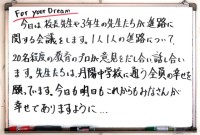 For your Dream
今日は校長先生や3年の先生たちが進路に
関する会議をします。1人1人の進路について、
20名程度の教育のプロが意見をだし合い話し合い
ます。先生たちは、月陽中学校に通う全員の幸せを
願っています。今日も明日もこれからもみなさんが
幸せでありますように…